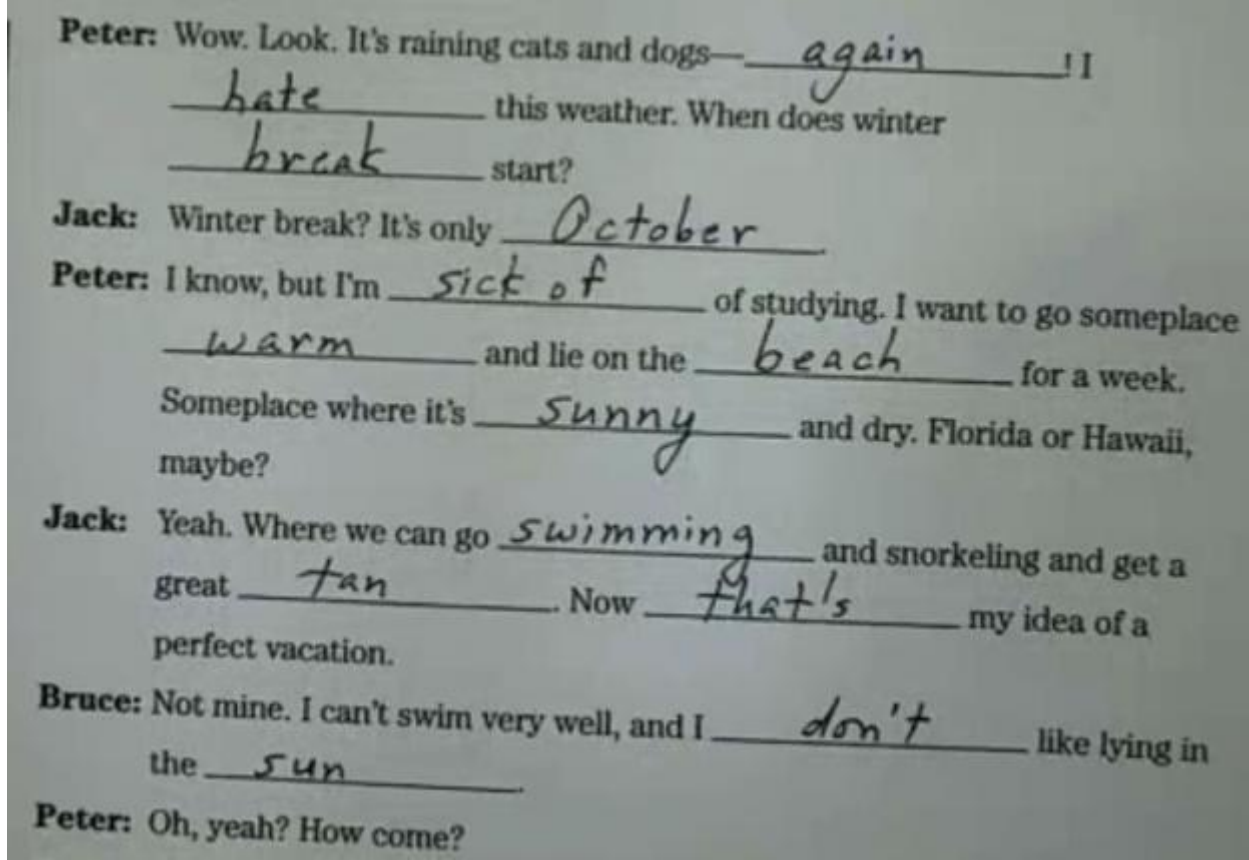 Peter: Wow. Look. It's raining cats and dogs—again! I
hate this weather. When does winter
break start?
Jack: Winter break? It's only October.
Peter: I know, but I'm sick of of studying. I want to go someplace
warm and lie on the beach for a week.
Someplace where it's sunny and dry. Florida or Hawaii,
maybe?
Jack: Yeah. Where we can go swimming and snorkeling and get a
great tan. Now that's my idea of a
perfect vacation.
Bruce: Not mine. I can't swim very well, and I don't like lying in
the sun.
Peter: Oh, yeah? How come?